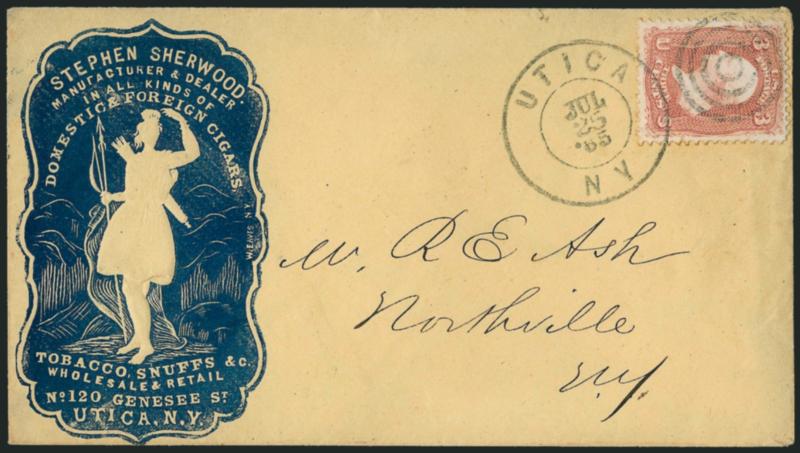 STEPHEN SHERWOOD.
MANUFACTURER & DEALER
IN ALL KINDS OF
DOMESTIC & FOREIGN CIGARS,
W. EAVES N.Y.
TOBACCO, SNUFFS &c.
WHOLESALE & RETAIL
No 120 GENESEE ST
UTICA, N.Y.
UTICA
JUL
25
'65
N Y
U S
3 3
THREE
CENTS
Mr. R E Ash
Northville
N.Y